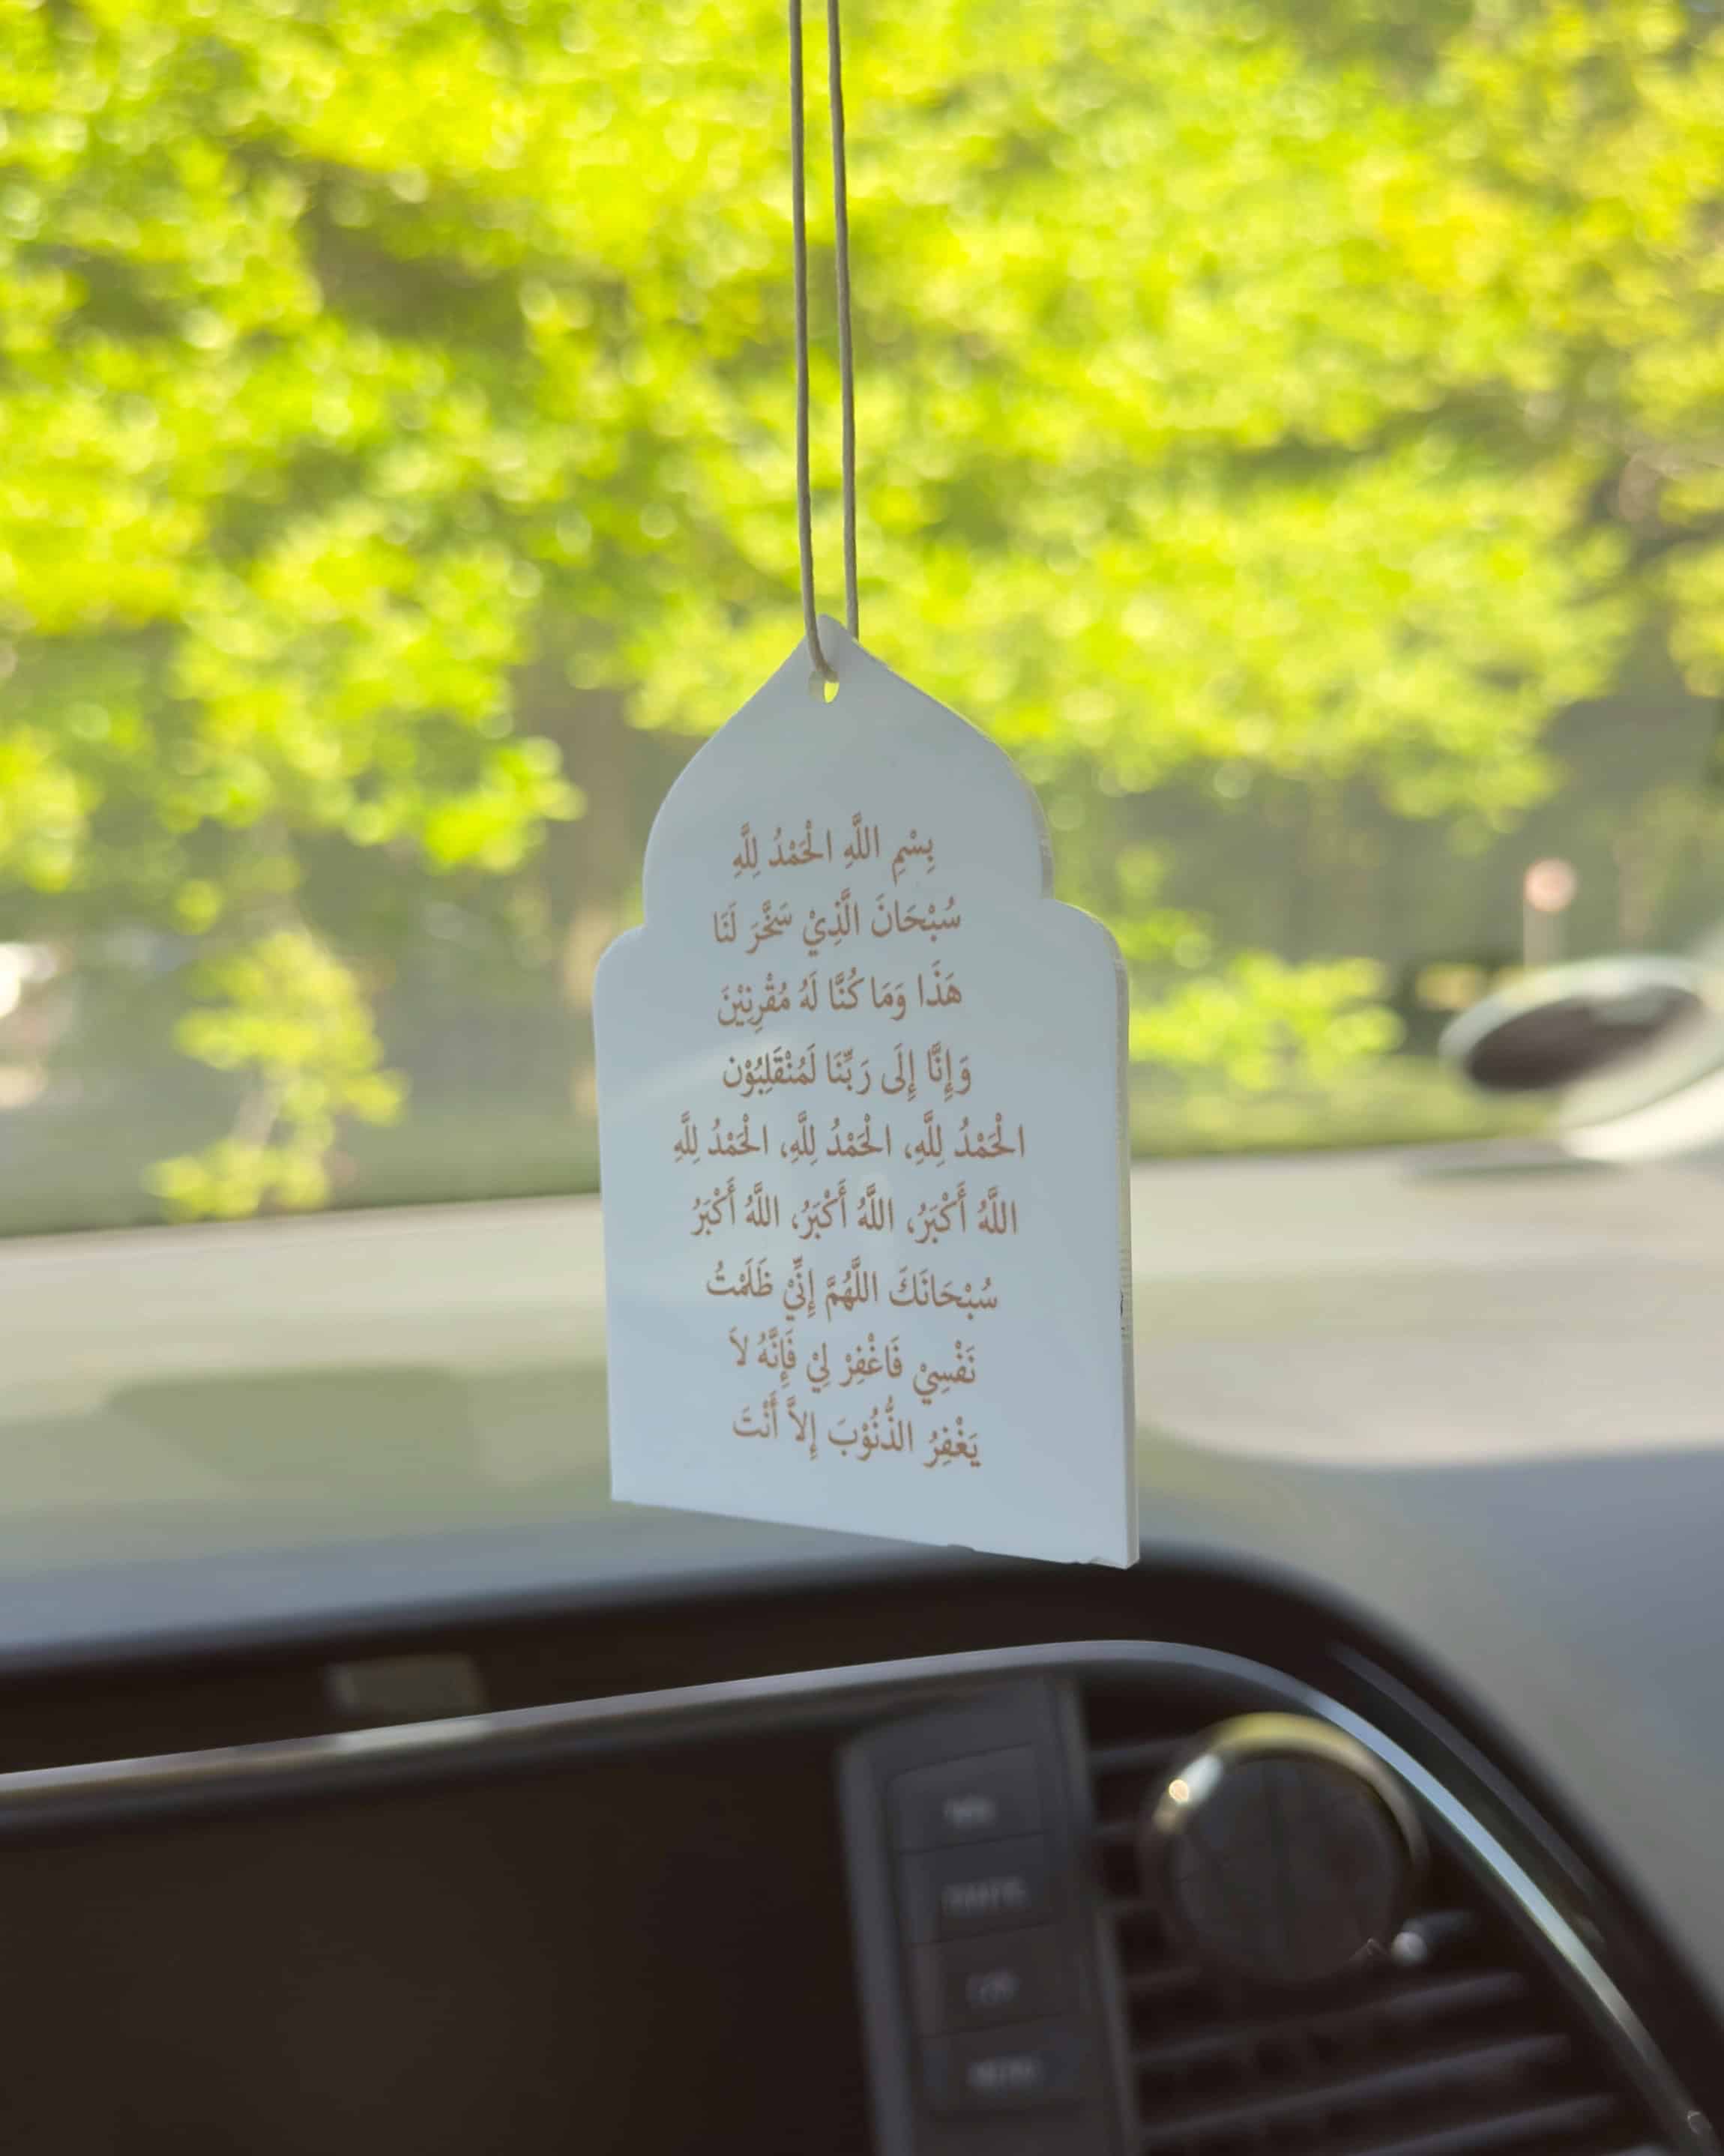 بِسْمِ اللَّهِ الْحَمْدُ لِلَّهِ
سُبْحَانَ الَّذِيْ سَخَّرَ لَنَا
هَذَا وَمَا كُنَّا لَهُ مُقْرِنِيْنَ
وَإِنَّا إِلَى رَبِّنَا لَمُنْقَلِبُوْن
الْحَمْدُ لِلَّهِ، الْحَمْدُ لِلَّهِ، الْحَمْدُ لِلَّهِ
اللَّهُ أَكْبَرُ، اللَّهُ أَكْبَرُ، اللَّهُ أَكْبَرُ
سُبْحَانَكَ اللَّهُمَّ إِنِّيْ ظَلَمْتُ
نَفْسِيْ فَاغْفِرْ لِيْ فَإِنَّهُ لاَ
يَغْفِرُ الذُّنُوْبَ إِلاَّ أَنْتَ